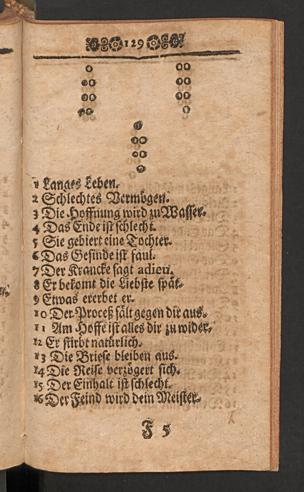 129
1 Langes Leben.
2 Schlechtes Vermögen.
3 Die Hoffnung wird zu Wasser.
4 Das Ende ist schlecht.
5 Sie gebiert eine Tochter.
6 Das Gesinde ist faul.
7 Der Krancke sagt adieu.
8 Er bekomt die Liebste spät.
9 Etwas ererbet er.
10 Der Proceß fält gegen dir aus.
11 Am Hoffe ist alles dir zu wider.
12 Er stirbt natürlich.
13 Die Briefe bleiben aus.
14 Die Reise verzögert sich.
15 Der Einhalt ist schlecht.
16 Der Feind wird dein Meister.
F 5